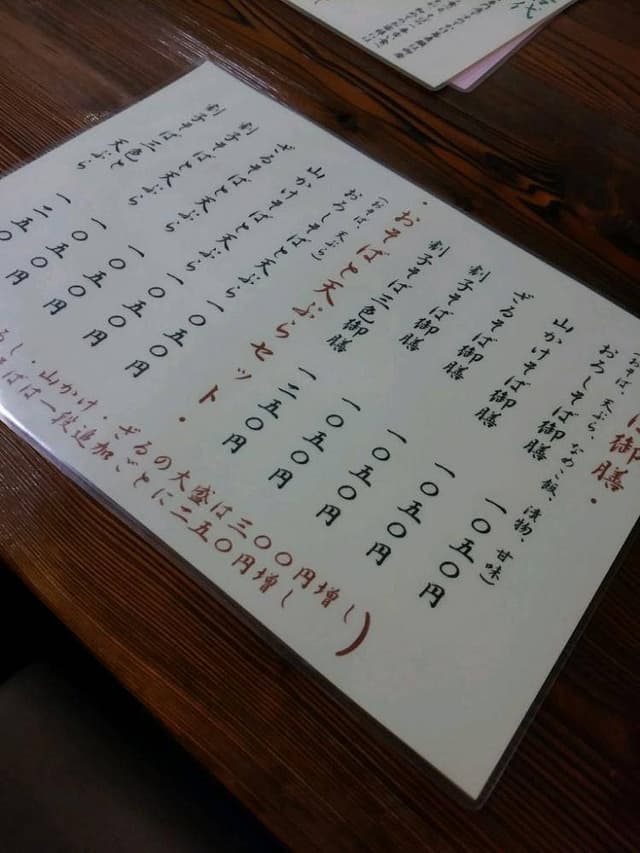 ば御膳・
おそば、天ぷら、なめこ飯、漬物、甘味)
おろしそば御膳 一〇五〇円
山かけそば御膳 一〇五〇円
ざるそば御膳 一〇五〇円
割子そば御膳 一〇五〇円
割子そば三色御膳 一二五〇円
・おそばと天ぷらセット・
(おそば、天ぷら)
おろしそばと天ぷら 一〇五〇円
山かけそばと天ぷら 一〇五〇円
ざるそばと天ぷら 一〇五〇円
割子そばと天ぷら 一〇五〇円
割子そば三色と天ぷら 一二五〇円
ろし・山かけ・ざるの大盛は三〇〇円増し
そばは一段追加ごとに二五〇円増し)